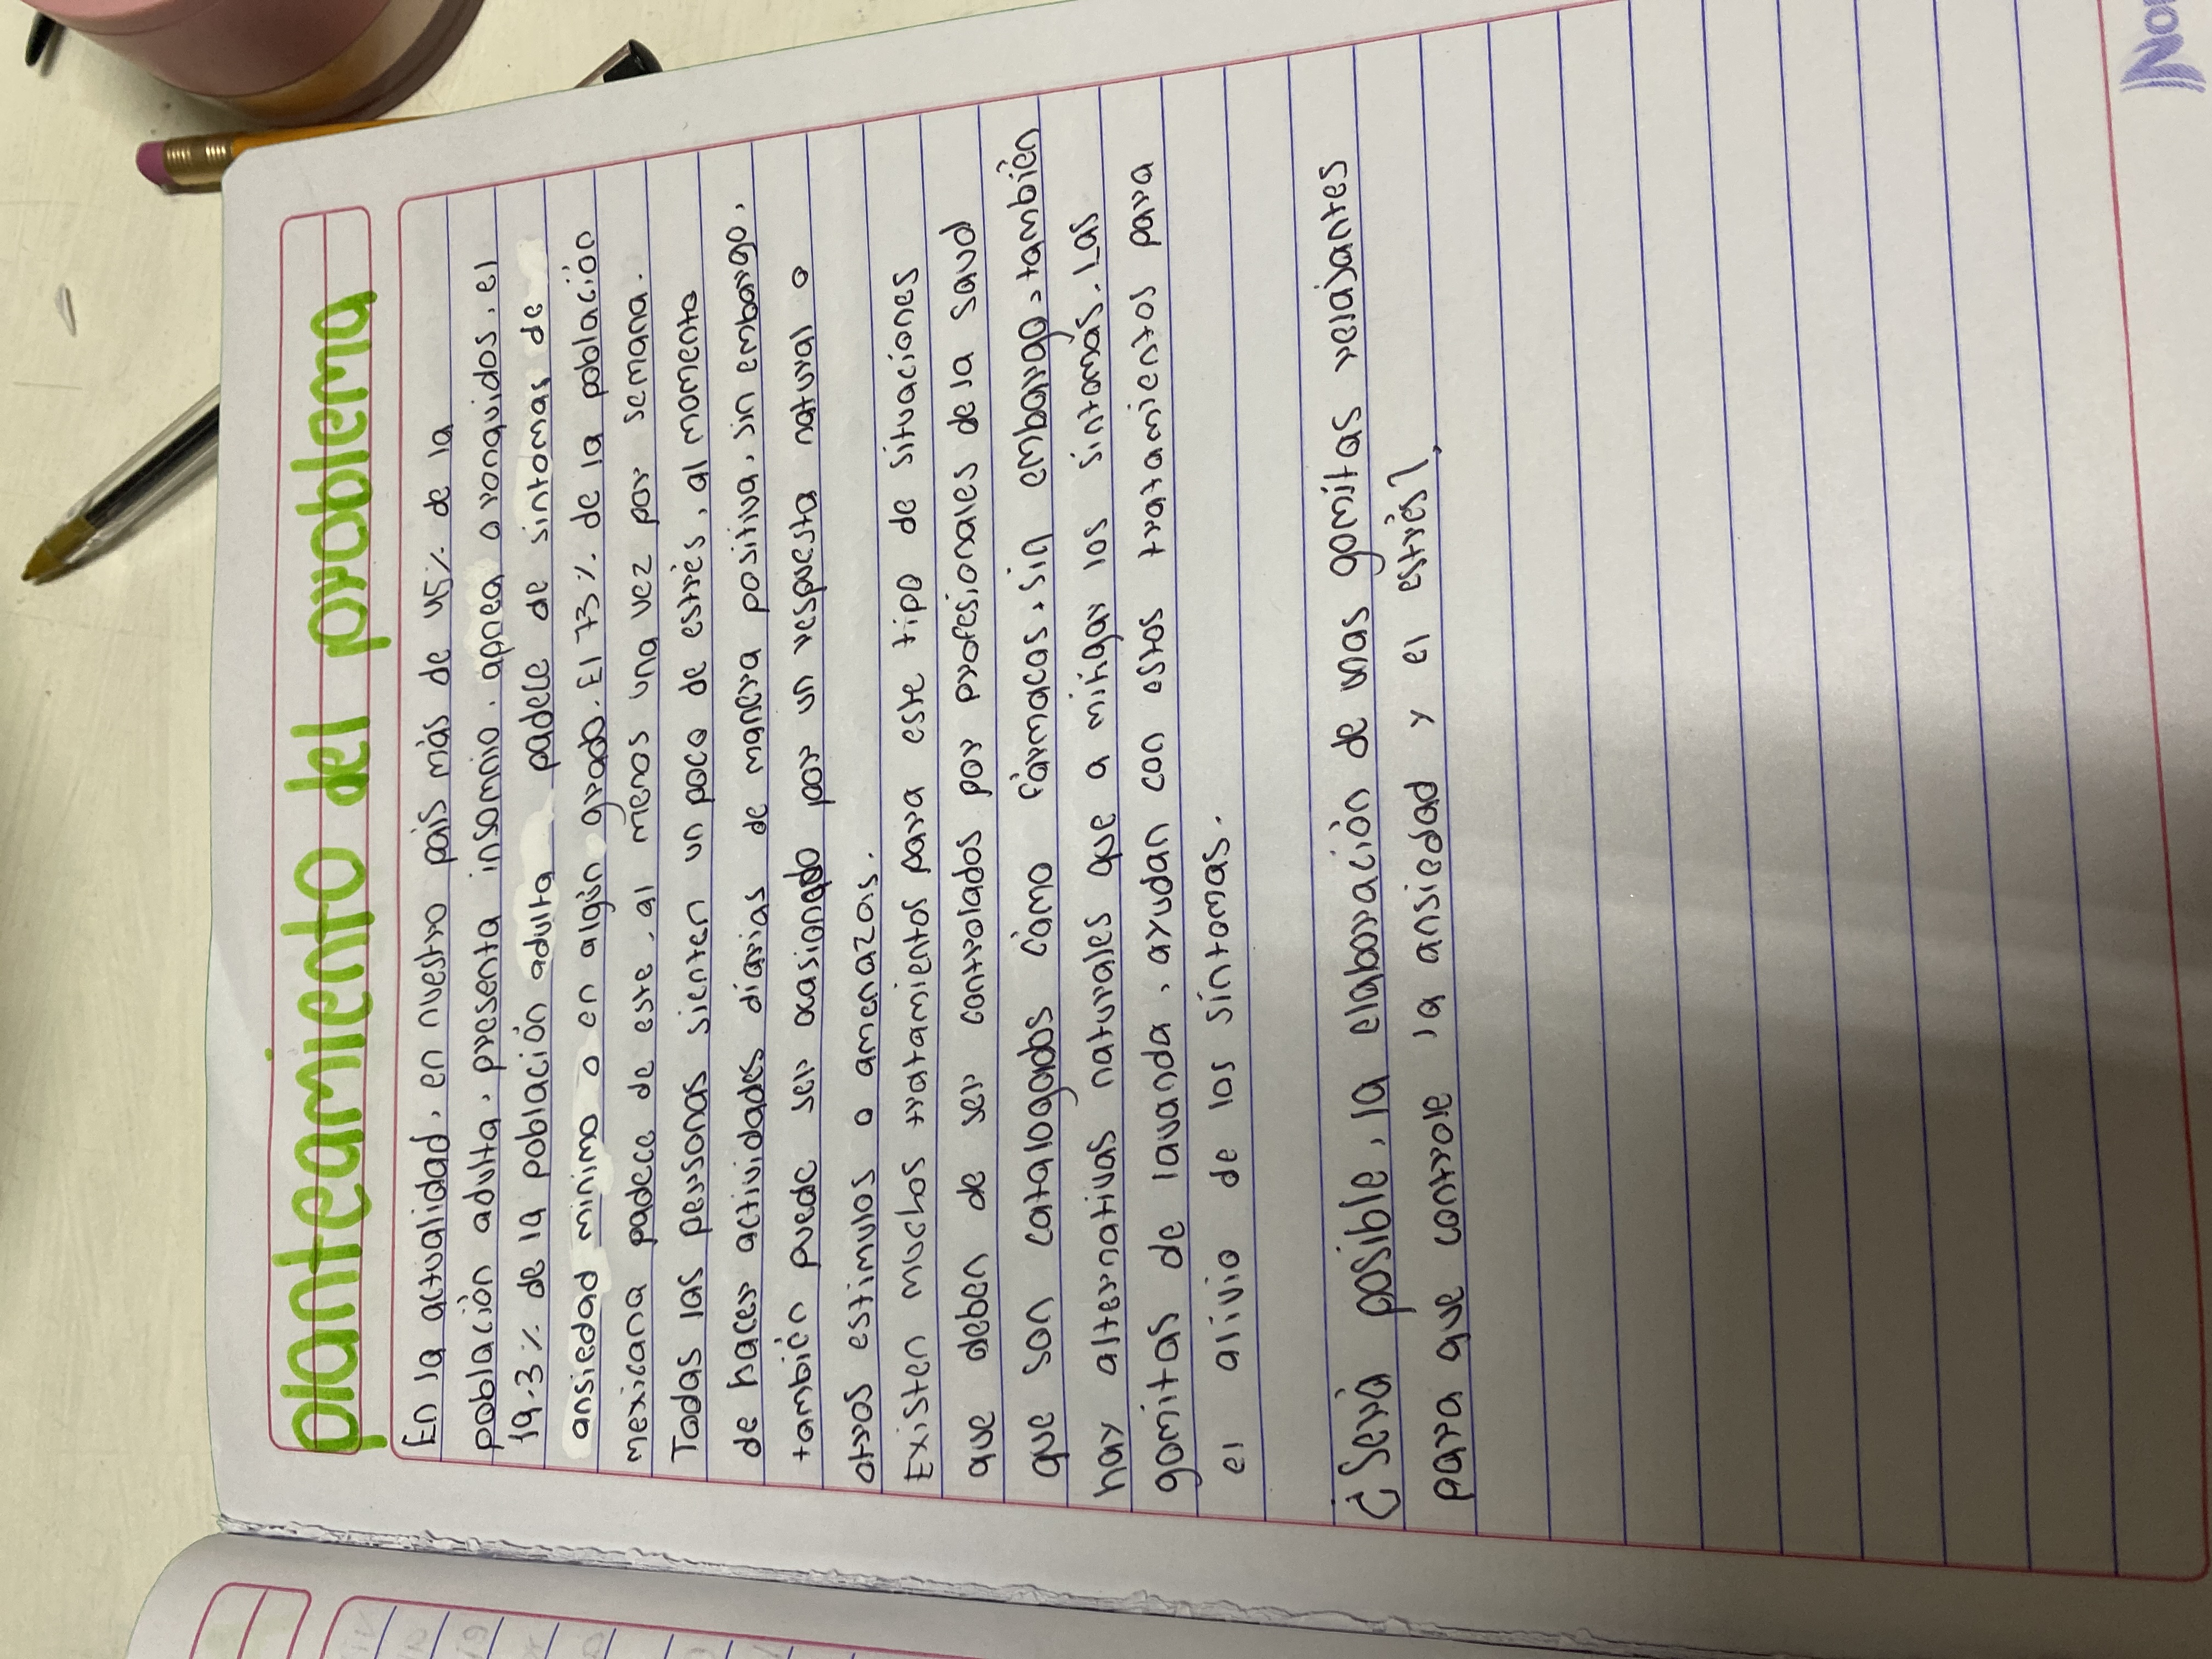 planteamiento del problema
En la actualidad, en nuestro país más de 45% de la
población adulta, presenta insomnio, apnea o ronquidos, el
19.3% de la población adulta padece de sintomas de
ansiedad minimo o en algún grado. El 73% de la población
mexicana padece de este, al menos una vez por semana.
Todas las personas sienten un poco de estrés, al momento
de hacer actividades diarias de manera positiva, sin embargo,
también puede ser ocasionado por un respuesta natural o
otros estimulos o amenazas.
Existen muchos tratamientos para este tipo de situaciones
que deben de ser controlados por profesionales de la salud
que son catalogados como fármacos, sin embargo, también
hay alternativas naturales que a mitigar los sintomas. Las
gomitas de lavanda, ayudan con estos tratamientos para
el alivio de los sintomas.
¿Seria posible, la elaboración de unas gomitas relajantes
para que controle la ansiedad y el estrés?
Nor